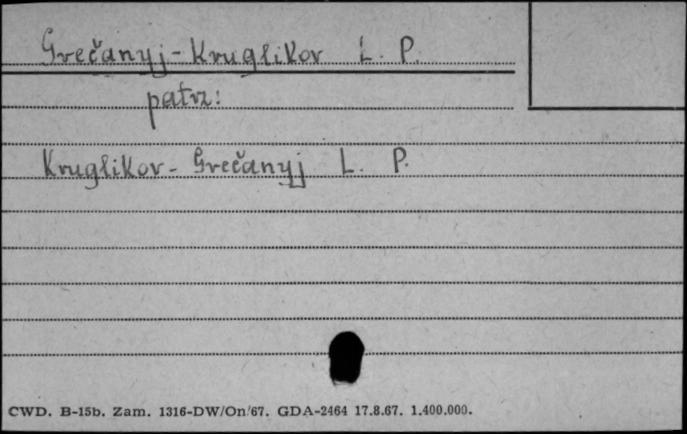 Grečanyj-Kruglikov L. P.
patrz:
Kruglikov-Grečanyj L. P.
CWD. B-15b. Zam. 1316-DW/On/67. GDA-2464 17.8.67. 1.400.000.